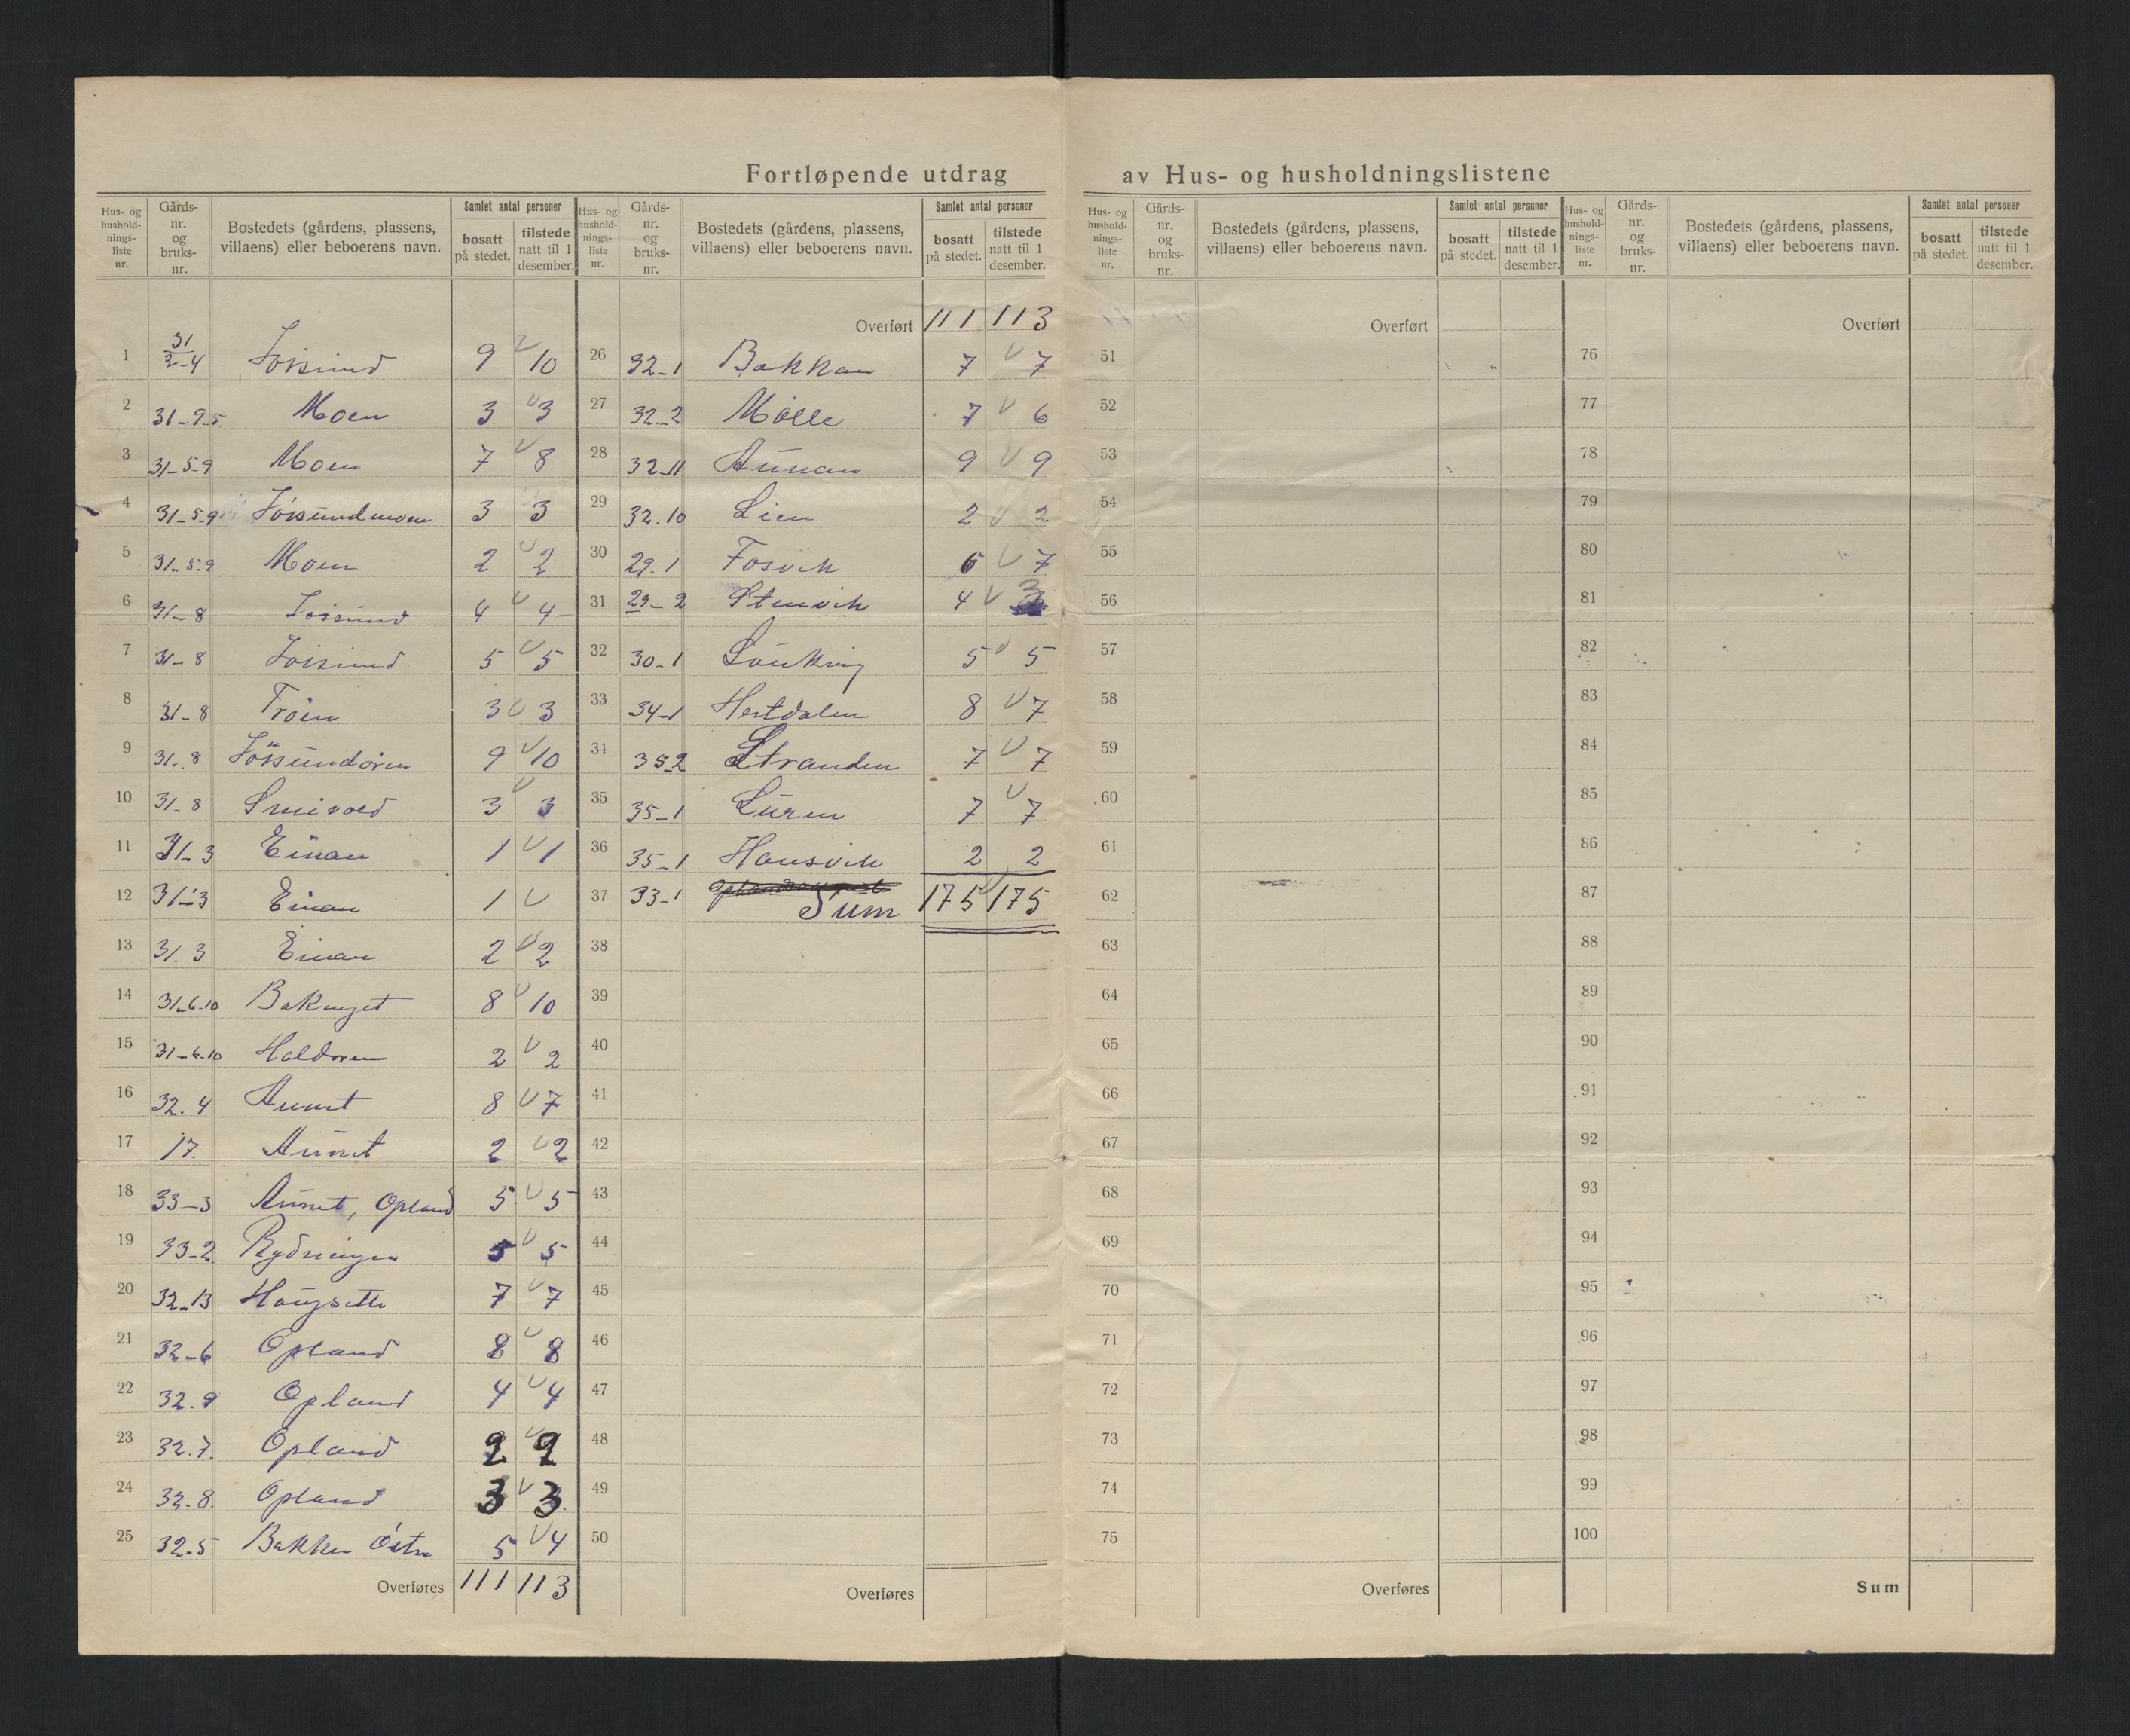 Fortløpende utdrag av Hus- og husholdningslistene
Hus- og hushold-nings-liste nr. Gårds-nr. og bruks-nr. Bostedets (gårdens, plassens, villaens) eller beboerens navn. Samlet antal personer bosatt på stedet. tilstede natt til 1 desember.
1 31 2-4 9 10
2 31-9-5 Moen 3 3
3 31-5-9 Moen 7 8
4 31-5-9 Jøssundmoen 3 3
5 31-5-9 Moen 2 2
6 31-8 Jøssund 4 4
7 31-8 Jøssund 5 5
8 31-8 Trøen 3 3
9 31-8 Jøssundøren 9 10
10 31-8 3 3
11 31-3 Einan 1 1
12 31-3 Einan 1
13 31.3 Einan 2 2
14 31-6-10 8 10
15 31-6-10 Haldoren 2 2
16 32.4 Aunet 8 7
17 17. Aunet 2 2
18 33-3 Aunet, Opland 5 5
19 33-2 Rydningen 5 5
20 32-13 7 7
21 32-6 Opland 8 8
22 32.9 Opland 4 4
23 32.7. Opland 2 2
24 32-8. Opland 3 3
25 32-5 Bakken 5 4
Overføres 111 113
Hus- og hushold-nings-liste nr. Gårds-nr. og bruks-nr. Bostedets (gårdens, plassens, villaens) eller beboerens navn. Samlet antal personer bosatt på stedet. tilstede natt til 1 desember.
Overført 111 113
26 32-1 Bakkan 7 7
27 32-2 Mølle 7 6
28 32-11 Aunan 9 9
29 32.10 Lien 2 2
30 29.1 Fosvik 6 7
31 29-2 Stenvik 4 3
32 30-1 5 5
33 34-1 Hestdalen 8 7
34 35-2 Stranden 7 7
35 35-1 Luren 7 7
36 35-1 Hansvik 2 2
37 33-1 Sum 175 175
38
39
40
41
42
43
44
45
46
47
48
49
50
Overføres
Hus- og hushold-nings-liste nr. Gårds-nr. og bruks-nr. Bostedets (gårdens, plassens, villaens) eller beboerens navn. Samlet antal personer bosatt på stedet. tilstede natt til 1 desember.
Overført
51
52
53
54
55
56
57
58
59
60
61
62
63
64
65
66
67
68
69
70
71
72
73
74
75
Overføres
Hus- og hushold-nings-liste nr. Gårds-nr. og bruks-nr. Bostedets (gårdens, plassens, villaens) eller beboerens navn. Samlet antal personer bosatt på stedet. tilstede natt til 1 desember.
Overført
76
77
78
79
80
81
82
83
84
85
86
87
88
89
90
91
92
93
94
95
96
97
98
99
100
Sum